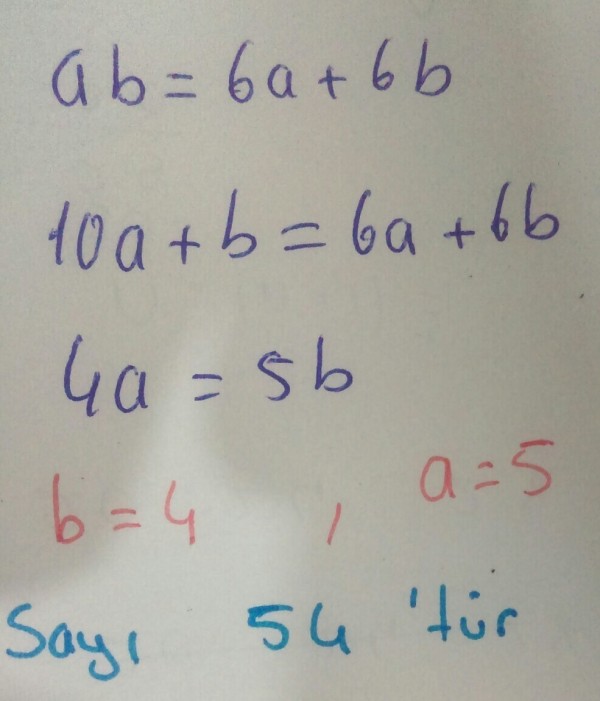 ab = 6a + 6b
10a + b = 6a + 6b
4a = 5b
b = 4 , a = 5
Sayı 54 'tür